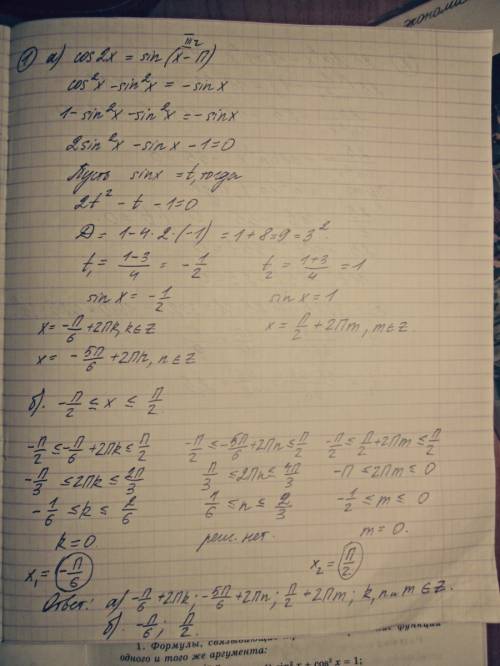 ① а) cos2x = sin(x-П) III r
cos²x - sin²x = -sinx
1-sin²x-sin²x = -sinx
2sin²x - sinx - 1=0
Пусть sinx = t, тогда
2t² - t - 1=0
D = 1-4·2·(-1) = 1+8=9=3²
t₁ = (1-3)/4 = -1/2 t₂ = (1+3)/4 = 1
sinx = -1/2 sinx = 1
x = -П/6 + 2Пk, k∈z x = П/2 + 2Пm, m∈z
x = -5П/6 + 2Пn, n∈z
б). -П/2 ≤ x ≤ П/2
-П/2 ≤ -П/6 + 2Пk ≤ П/2 -П/2 ≤ -5П/6 + 2Пn ≤ П/2 -П/2 ≤ П/2 + 2Пm ≤ П/2
-П/3 ≤ 2Пk ≤ 2П/3 П/3 ≤ 2Пn ≤ 4П/3 -П ≤ 2Пm ≤ 0
-1/6 ≤ k ≤ 2/6 1/6 ≤ n ≤ 2/3 -1/2 ≤ m ≤ 0
k=0 реш. нет. m=0.
x₁ = -П/6 x₂ = П/2
Ответ: а) -П/6 + 2Пk; -5П/6 + 2Пn; П/2 + 2Пm; k, n, m ∈ z.
б) -П/6; П/2.
1. Формулы, функции
одного и того же аргумента:
x + cos² x = 1;